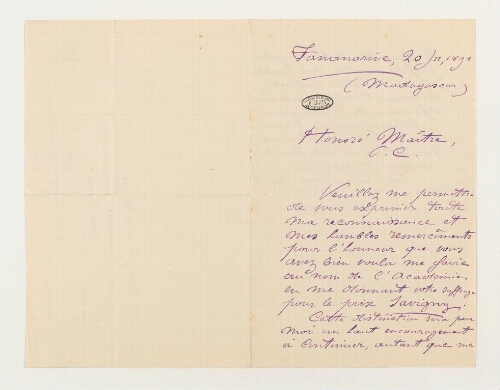 Tananarive, 20
(Madagascar)
Honoré Maître,
Veuillez me permettre
de vous exprimer toute
ma reconnaissance et
mes humbles remerciments
pour l'honneur que vous
avez bien voulu me faire
au nom de l'Académie
en me donnant votre suffrage
pour le prix Savigny.
Cette distinction sera pour
moi un haut encouragement
à continuer, autant que me